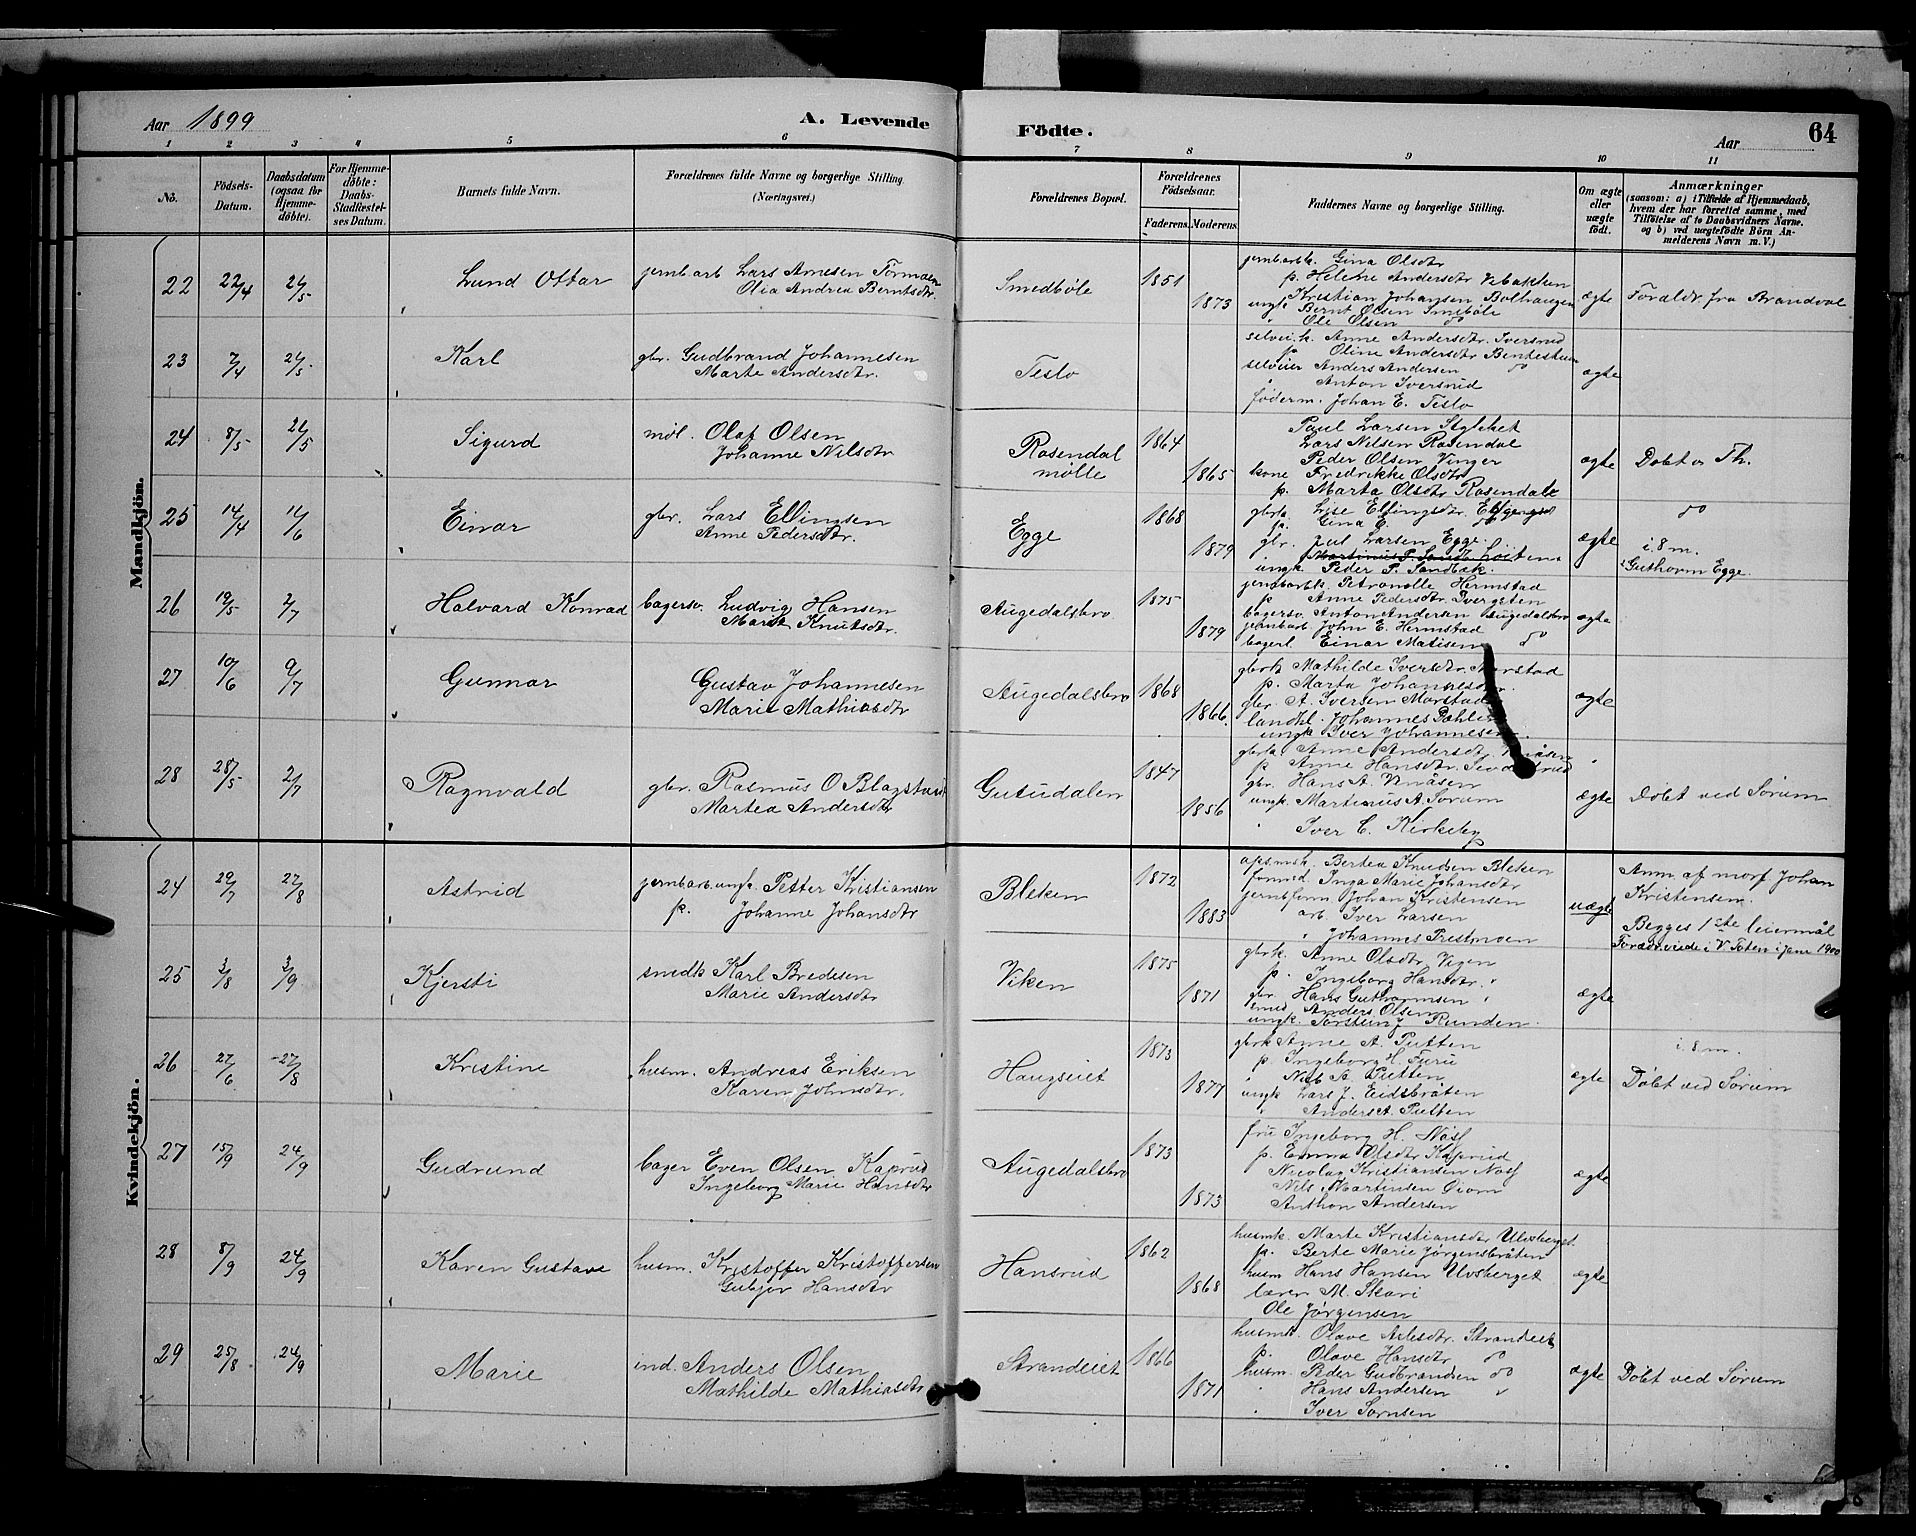 Aar 1899 A. Levende Födte. Aar 64
1 2 3 4 5 6 7 8 9 10 11
No.
Födsels-Datum.
Daabsdatum (ogsaa for Hjemme-döbte).
For Hjemme-døbte: Daabs-Stadfæstel-ses Datum.
Barnets fulde Navn.
Forældrenes fulde Navne og borgerlige Stilling. (Næringsvei.)
Forældrenes Bopæl.
Forældrenes Födselsaar.
Faderens. Moderens.
Faddernes Navne og borgerlige Stilling.
Om ægte eller uægte født.
Anmærkninger
(saasom: a) i Tilfælde af Hjemmedaab, hvem der har forrettet samme, med Tilföielse af to Daabsvidners Navne, og b) ved uægtefödte Börn An-melderens Navn m. V.)
Mandkjön.
22 22/4 21/5 Lund Ottar
jernb.arb. Lars Arnesen
Olia Andrea Berntsdtr.
Smedbøle 1851 1873
jernbarbk. Gina Olsdtr
p. Helene Andersdtr Vibakken
Kristian Johansen Bolhaugen
ungk. Bernt Olsen Smebøle
Ole Olsen do
ægte Foraldr fra Brandval
23 7/4 21/5 Karl
gbr. Gudbrand Johannesen
Marte Andersdtr.
Teslo
selvei.k. Anne Andersdtr. Iversrud
p. Oline Andersdtr Bentestuen
selveier Anders Andersen do
" Anton Iversrud
føderm. Johan E. Teslo
ægte
24 8/5 21/5 Sigurd
møl. Olaf Olsen
Johanne Nilsdtr
Rosendal mølle 1864 1865
Paul Larsen
Lars Nilsen Rosendal
Peder Olsen Vinger
kone Fredrikke Olsdtr
p. Marta Olsdtr Rosendale
ægte Døbt v Th.
25 14/4 11/6 Einar
gbr. Lars Ellingsen
Anne Pedersdtr.
Egge 1868 1879
gbrk. Lise Ellingsdtr.
p. Gina E. do
gbr. Jul Larsen Egge
ungk. Peder P. Sandbæk.
ægte do
i. 8 m.
Guthorm Egge
26 19/5 2/7 Halvard Konrad
bagersv. Ludvig Hansen
Marit Knutsdtr.
Augedalsbro 1875 1879
jernbarbk Petronelle Hermstad
p Anne Pedersdtr
bagersv. Anton Andersen Augedalsbro
jernbarb John E. Hermstad
bagerl Einar Matisen do
ægte
27 10/6 9/7 Gunnar
Gustav Johannesen
Marie Mathiasdtr
Augedalsbro 1868 1866.
gbrk Mathilde Iversdtr. Morstad
p. Marta Johannesdtr.
gbr. A. Iversen Morstad
landhl. Johannes Dahlen
ungk Iver Johannesen
ægte
28 28/5 2/7 Ragnvald
gbr. Rasmus O Blagstad
Martea Andersdtr
Gutudalen 1847 1856
gbrk Anne Andersdtr.
p Anne Hansdtr.
gbr. Hans A.
ungk. Martinus A. Sørum
" Iver C. Kirkeby
ægte Døbt ved Sørum
Kvindekjön.
24 29/7 27/8 Astrid
jernb.arb. ungk. Petter Kristiansen
p. Johanne Johansdtr
Bleken 1872 1883
Bertea Knudsen Bleken
Inga Marie Johansdtr
jernbform Johan Kristensen
arb. Iver Larsen
" Johannes Prestmoen
uægte
Anm. af morf Johan Kristensen.
Begges 1ste leiermål
Forældr. viede i V. Toten i Jan 1900
25 3/8 3/9 Kjersti
smedk Karl Bredesen
Marie Andersdtr
Viken 1875 1871
gbrk. Anne Olsdtr. Vigen
p. Ingeborg Hansdtr. "
gbr. Hans Guthormsen "
smed Anders Olsen
ungk. Torstein J Runden.
ægte
26 27/6 27/8 Kristine
husm. Andreas Eriksen
Karen Johnsdtr.
Haugseiet 1873 1877
gbrk Anne A. Putten
p. Ingeborg H. Furu
" Nils A. Putten
ungk Lars J. Eidsbråten
" Anders A. Putten
ægte
i. 8 m.
Døbt ved Sørum
27 15/9 24/9 Gudrund
bager Even Olsen Kaprud
Ingeborg Marie Hansdtr
Augedalsbro 1873 1873
fru Ingeborg H. Næss
p. Emma Olsdtr Kaprud
Nicolay Kristiansen Næss
Nils Martinsen
Anthon Andersen
ægte
28 8/9 24/9 Karen Gustave
husm. Kristoffer Kristoffersen
Gubjør Hansdtr
Hansrud 1862 1868
husmk. Marte Kristiansdtr Ulvsberget
p. Berte Marie Jørgensbråten
husm Hans Hansen Ulvsberget
lærer M. Skari
Ole Jørgensen
ægte
29 25/8 24/9 Marie
ind. Anders Olsen
Mathilde Mathiasdtr
Strandeiet 1866 1871
husmk. Olave Arlesdtr. Strandeiet
p. Olave Hansdtr do
husm. Peder Gudbrandsen do
" Hans Andersen "
" Iver Sørnsen
ægte Døbt ved Sørum